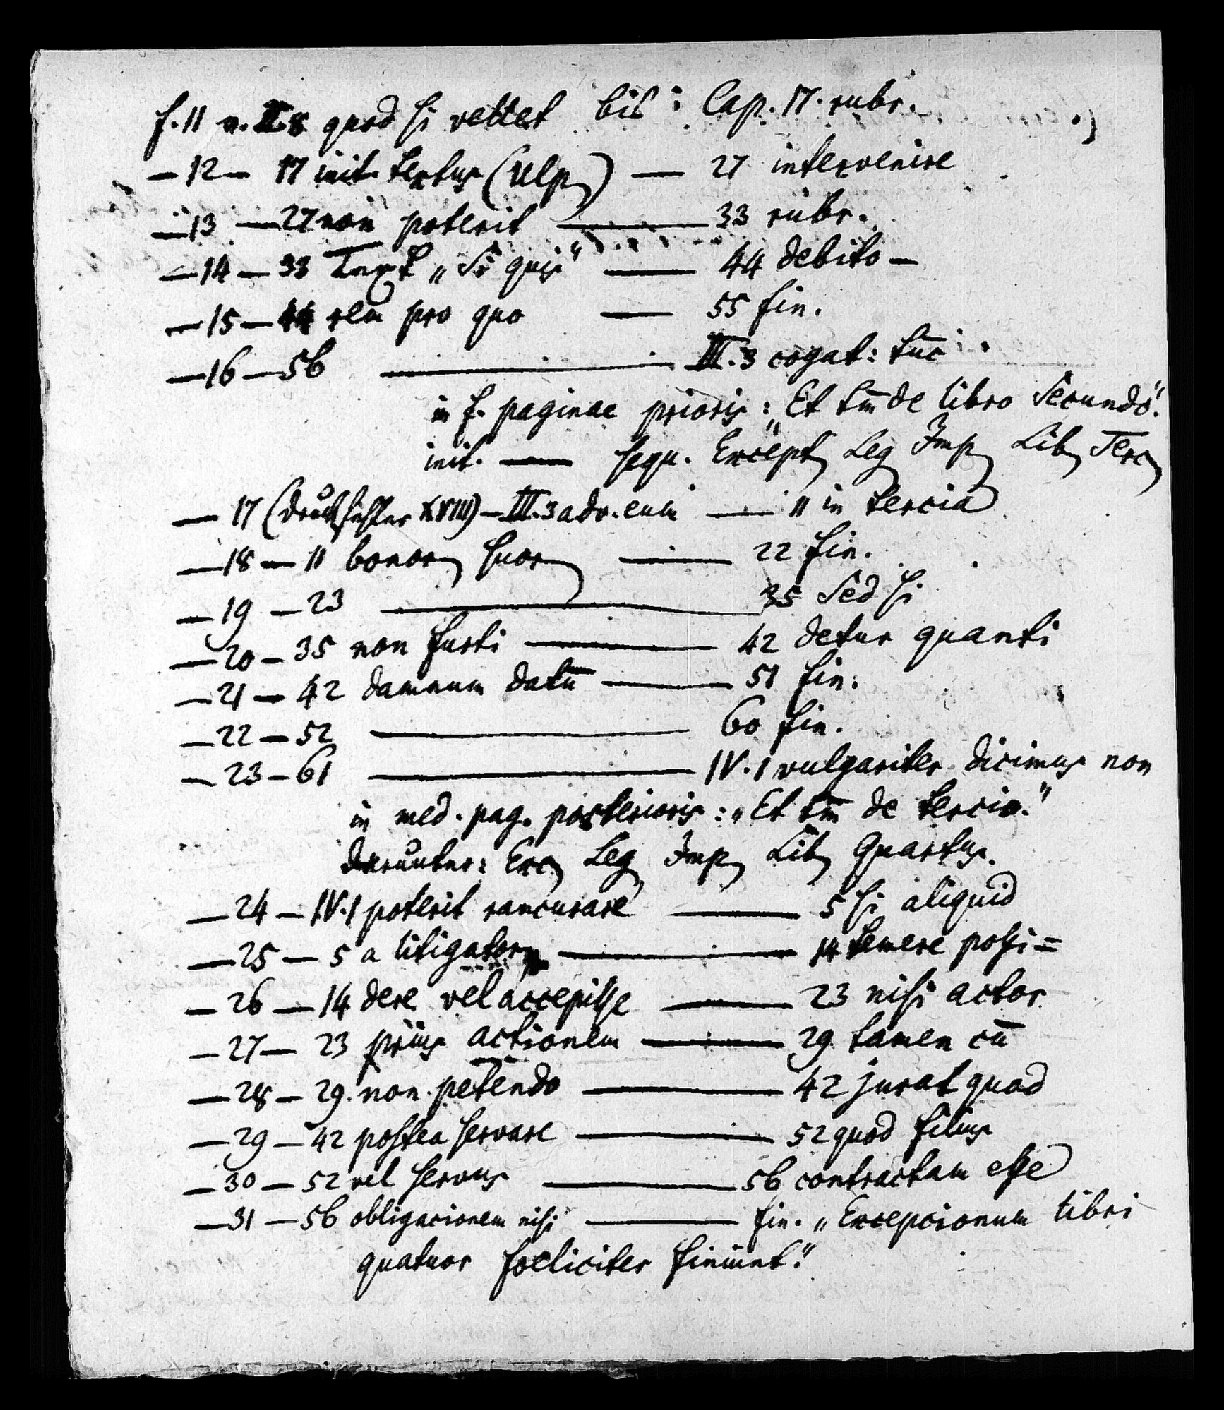 f. 11 v. II. 8 quod si vellet bis: Cap. 17. rubr.
— 12 — 17 init. textus (Ulp) — 27 intervenire
— 13 — 27 non poterit — 33 rubr.
— 14 — 33 Text „Si quis“ — 44 debito —
— 15 — 44 rem pro quo — 55 fin.
— 16 — 56 — III. 3 cogat: tūc
in f. paginae prioris: „Et tm̄ de libro secundo.“
init. — sequ. Except Leg Imp Lib Terc
— 17 (Druckfehler XVIII) — III. 3 adv. eum — 11 in tercia
— 18 — 11 bonor suor — 22 fin.
— 19 — 23 — 35 Sed si
— 20 — 35 non furti — 42 detur quanti
— 21 — 42 damnum datū — 51 fin:
— 22 — 52 — 60 fin.
— 23 — 61 — IV. 1 vulgariter dicimus non
in med. pag. posterioris: „Et tm̄ de tercio.“
darunter: Exc Leg Imp Lib Quartus.
— 24 — IV. 1 poterit rancurare — 5 si aliquid
— 25 — 5 a litigator — 14 temere possi=
— 26 — 14 dere vel accepisse — 23 nisi actor
— 27 — 23 prius actionem — 29 tamen cū
— 28 — 29. non petendo — 42 jurat quod
— 29 — 42 postea servare — 52 quod filius
— 30 — 52 vel servus — 56 contractam esse
— 31 — 56 obligacionem nisi — fin. „Excepcionum libri
quatuor foeliciter finiunt.“